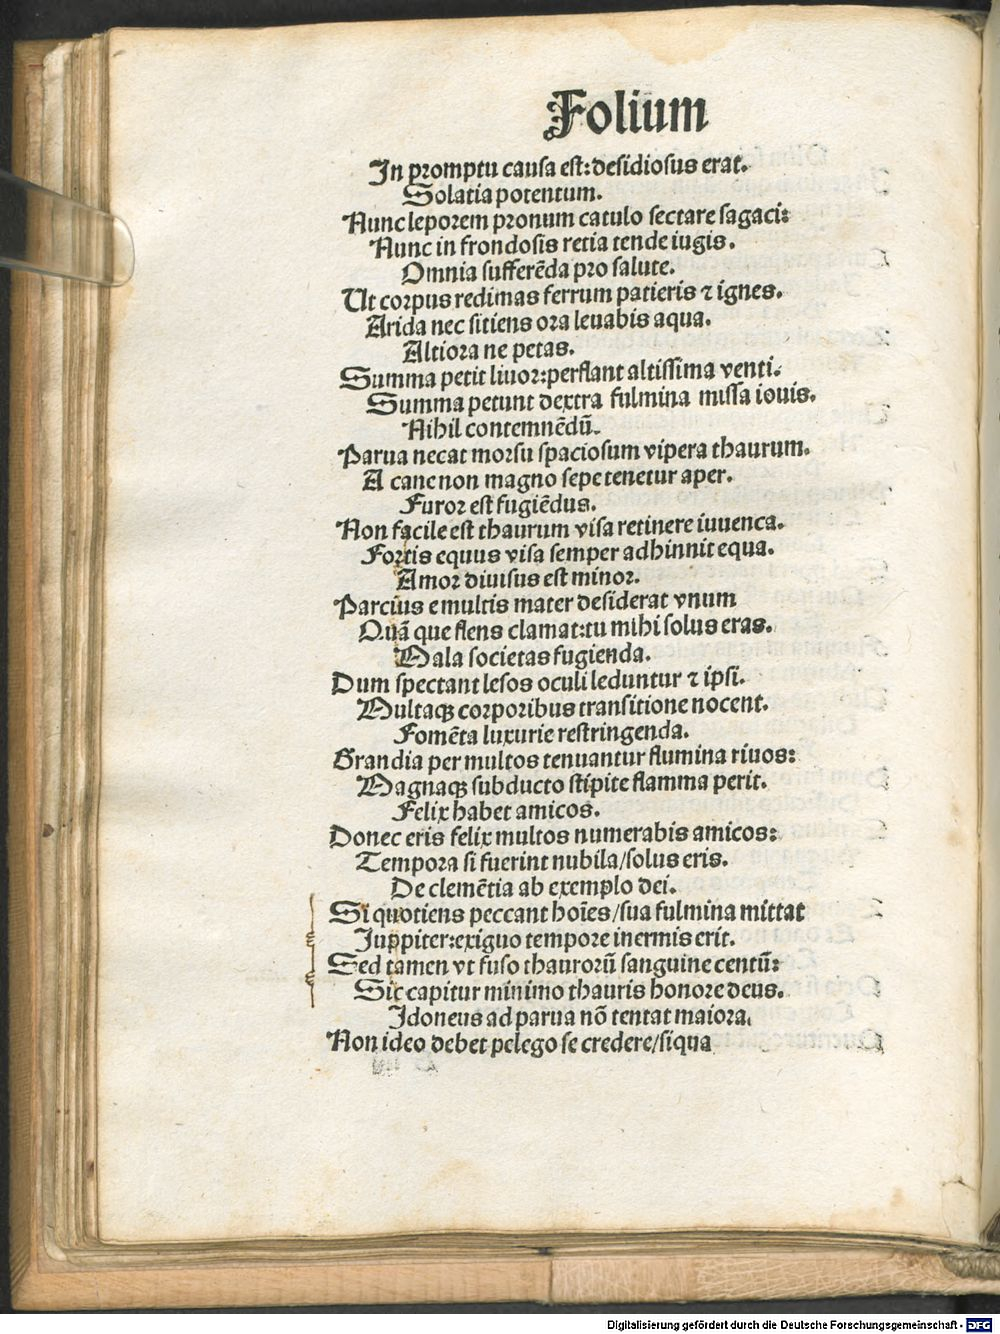 Folium
In promptu causa est:desidiosus erat.
Solatia potentum.
Nunc leporem pronum catulo sectare sagaci:
Nunc in frondosis retia tende iugis.
Omnia sufferēda pro salute.
Ut corpus redimas ferrum patieris ⁊ ignes.
Arida nec sitiens ora leuabis aqua.
Altiora ne petas.
Summa petit liuor:perflant altissima venti.
Summa petunt dextra fulmina missa iouis.
Nihil contemnēdū.
Parua necat morsu spaciosum vipera thaurum.
A cane non magno sepe tenetur aper.
Furor est fugiēdus.
Non facile est thaurum visa retinere iuuenca.
Fortis equus visa semper adhinnit equa.
Amor diuisus est minor.
Parcius e multis mater desiderat vnum
Quā que flens clamat:tu mihi solus eras.
Mala societas fugienda.
Dum spectant lesos oculi leduntur ⁊ ipsi.
Multaqꝫ corporibus transitione nocent.
Fomēta luxurie restringenda.
Grandia per multos tenuantur flumina riuos:
Magnaqꝫ subducto stipite flamma perit.
Felix habet amicos.
Donec eris felix multos numerabis amicos:
Tempora si fuerint nubila/solus eris.
De clemētia ab exemplo dei.
Si quotiens peccant hoīes/sua fulmina mittat
Iuppiter:exiguo tempore inermis erit.
Sed tamen vt fuso thaurorū sanguine centū:
Sic capitur minimo thauris honore deus.
Idoneus ad parua nō tentat maiora.
Non ideo debet pelego se credere/siqua
Digitalisierung gefördert durch die Deutsche Forschungsgemeinschaft - DFG